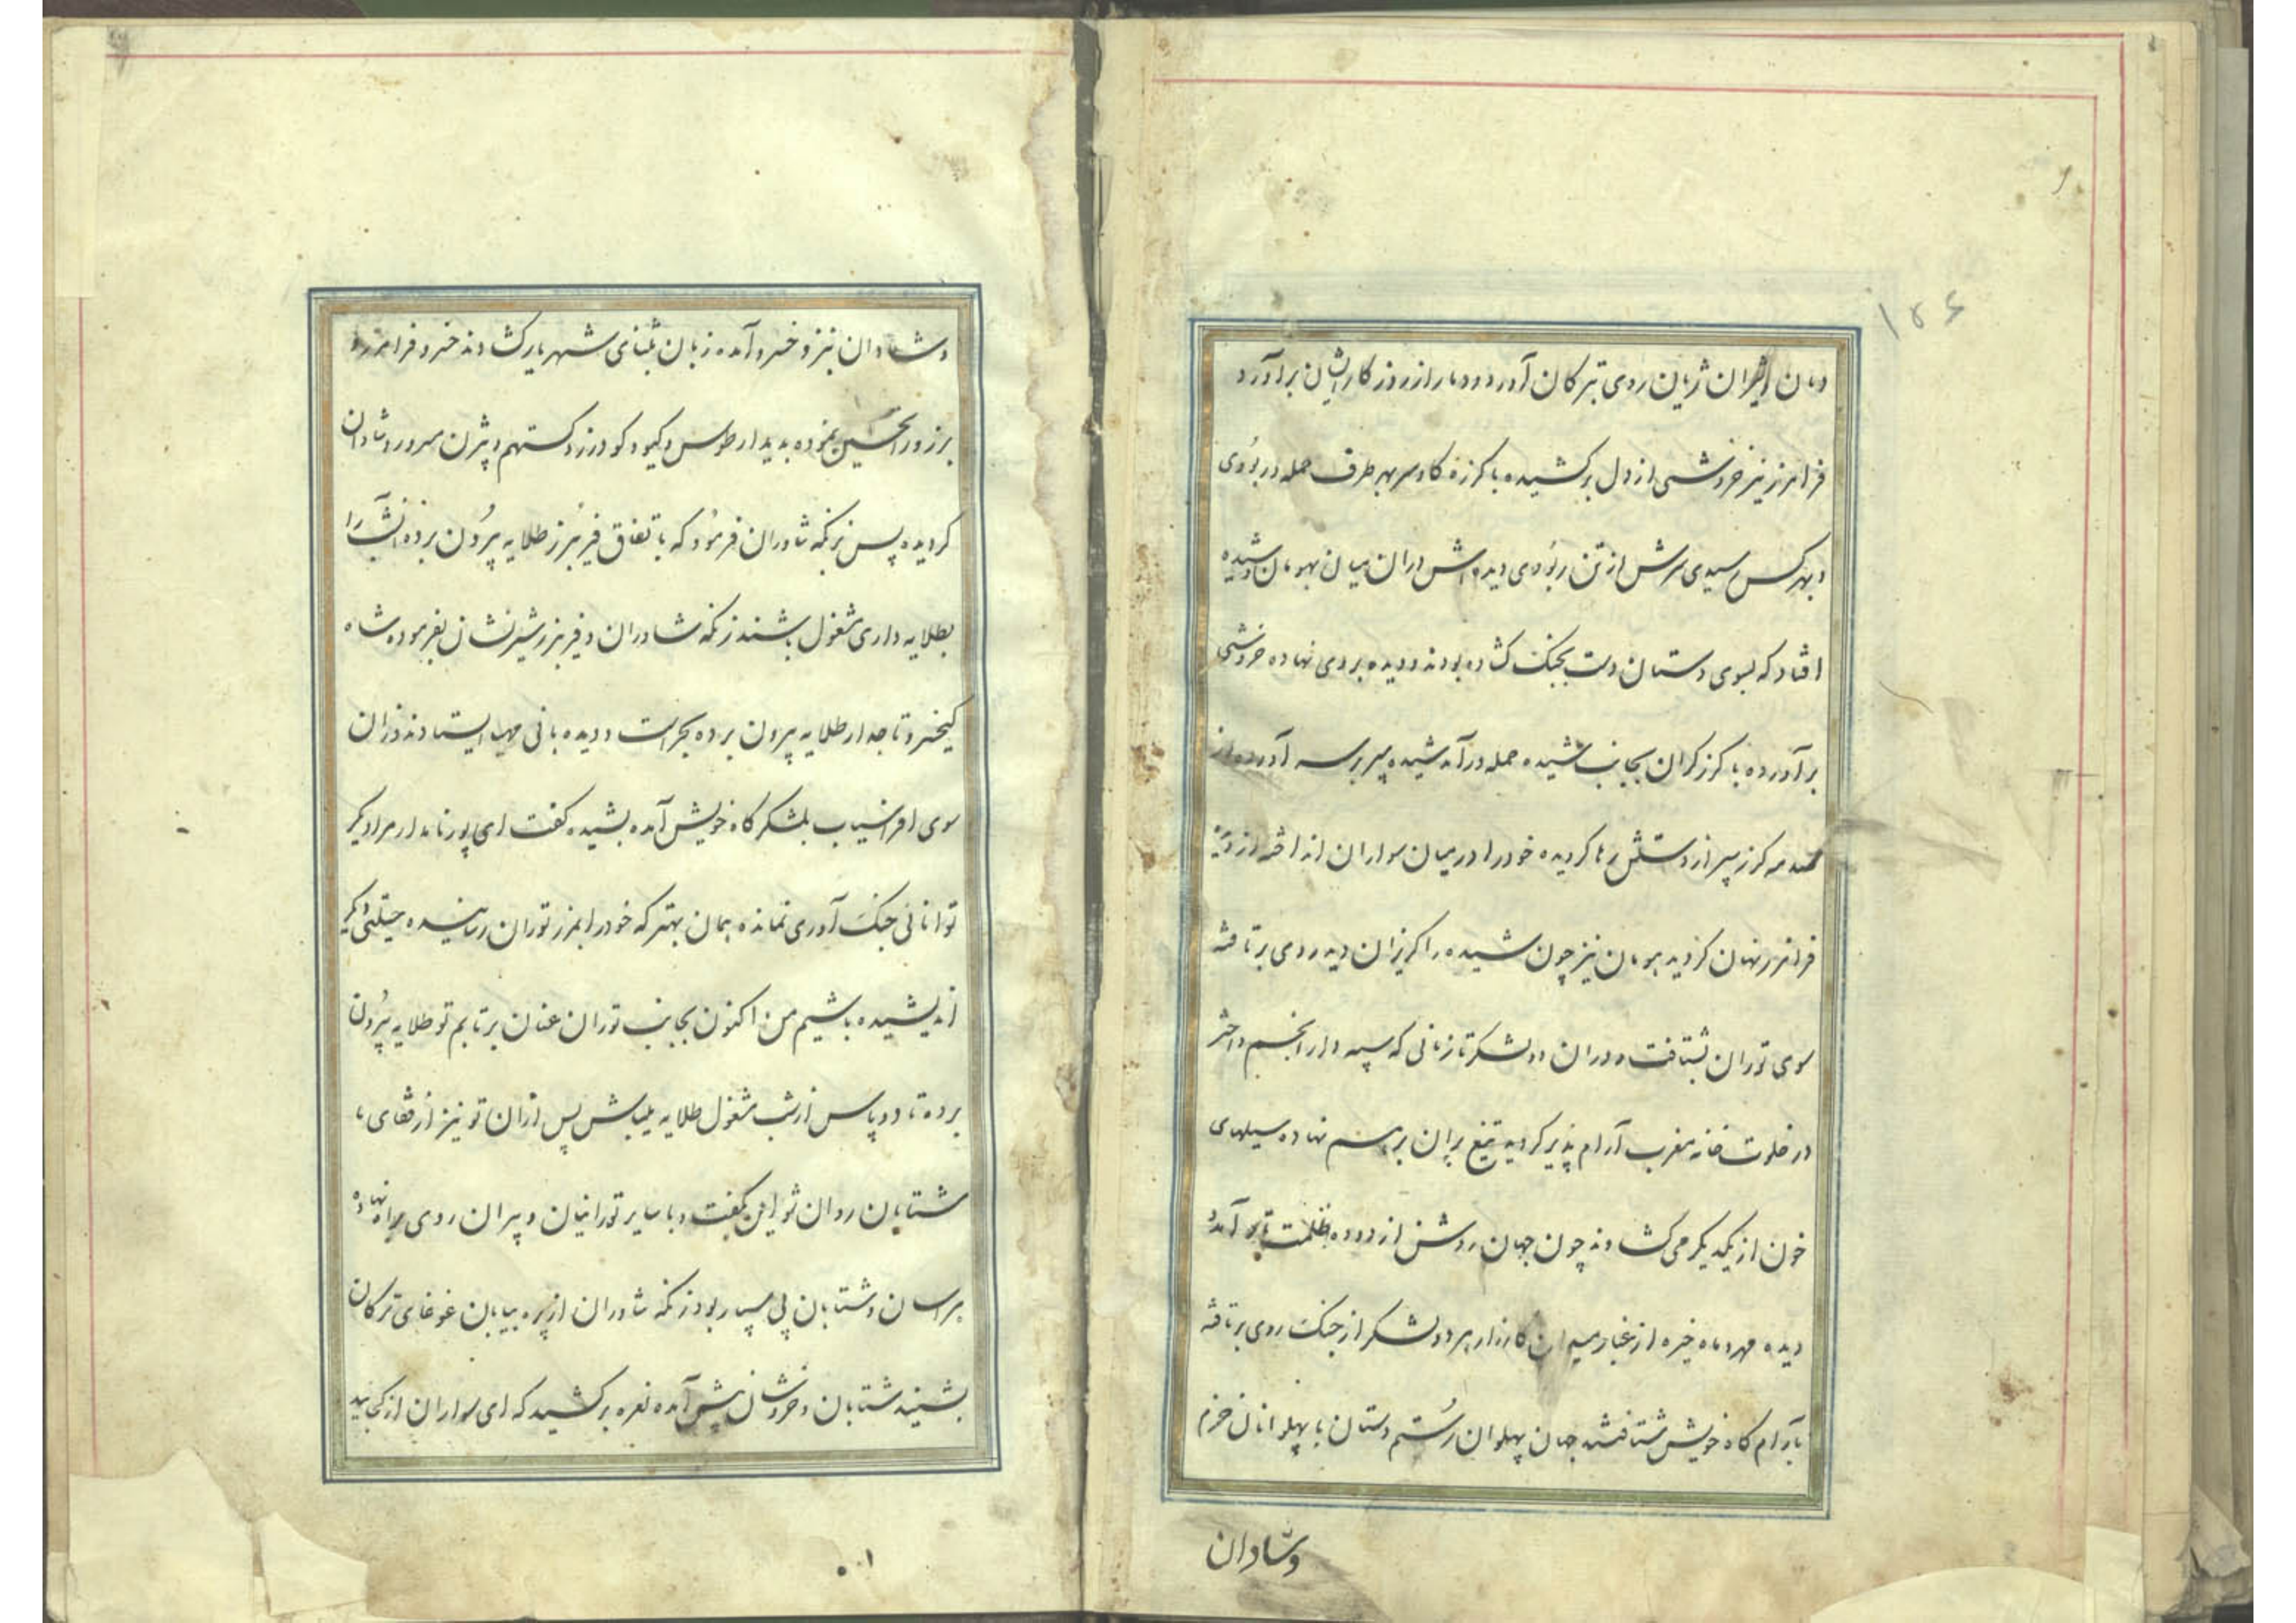 ۱۵۶
دمان و شیران ژیان روی بترکان آورد و دمار از روزکارایشان برآورد
فرامرز نیز خروشی از دل برکشیده با کرزه کاوسر بهر طرف حمله در بودی
و بهرکس رسیدی سرش از تن ربودی دیده اش دران میان بهومان و شیده
افتاد که بسوی دستان دست بجنک کشاده بودند و دیده بر وی نهاده خروشی
برآورده با کرز کران بجانب شیده حمله درآمد شیده سپر بر سر آورده از
صدمه کرز سپر از دستش رها کردیده خود را در میان سواران انداخته از دیده
فرامرز نهان کردید هومان نیز چون شیده را کریزان دید روی برتافته
سوی توران بشتافت و دران دو لشکر تا زمانی که سپهدار انجم و اختر
در خلوت خانه مغرب آرام پذیر کردید تیغ بران برهم نهاده سیلهای
خون از یکدیکر می کشادند چون جهان روشن از دوده ظلمت تیره آمد و
دیده مهر و ماه خیره از غبار میدان کارزار هر دو لشکر از جنک روی برتافته
بآرام کاه خویش شتافتند جهان پهلوان رستم دستان با پهلوانان خرم
وشادان
وشادان بنزد خسرو آمده زبان بثنای شهریار کشادند خسرو فرامرز و
برزو را تحسین نموده بدیدار طوس و کیو و کودرز و کستهم و بیژن مسرور و شادان
کردیده پس زنکه شاوران فرمود که باتفاق فریبرز طلایه بیرون برده آنشب را
بطلایه داری مشغول باشند زنکه شاوران و فریبرز شیرنشان بفرموده شاه
کیخسرو تاجدار طلایه بیرون برده بحراست و دیده بانی مهیا ایستادند وزان
سوی افراسیاب بلشکرکاه خویش آمده بشیده کفت ای پور نامدار مرا دیکر
توانائی جنک آوری نمانده همان بهتر که خود را بمرز توران رسانیده حیلتی دیکر
اندیشیده باشیم من اکنون بجانب توران عنان برتابم تو طلایه بیرون
برده تا دو پاس از شب مشغول طلایه میباش پس ازان تو نیز از قفای ما
شتابان روان شو این بکفت و با سایر تورانیان و پیران روی براه نهاده
هراسان و شتابان پی سپار بود زنکه شاوران از پره بیابان غوغای ترکان
بشنید شتابان و خروشان پیش آمده نعره برکشید که ای سواران از کجائید